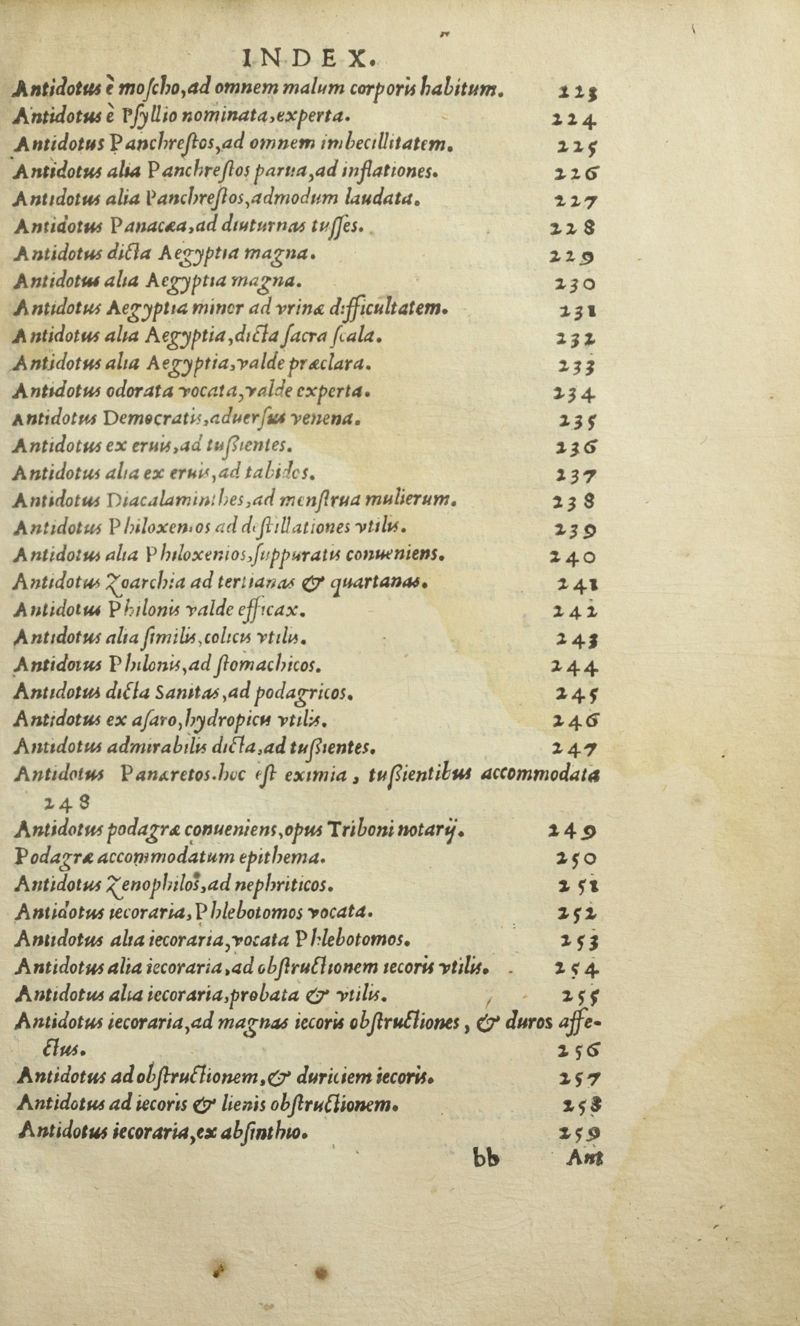 INDEX.
Antidotus è moſcho,ad omnem malum corporis habitum. 223
Antidotus è Pſyllio nominata,experta. 224
Antidotus Panchreſtos,ad omnem imbecillitatem. 225
Antidotus alia Panchreſtos parua,ad inflationes. 226
Antidotus alia Panchreſtos,admodum laudata. 227
Antidotus Panacæa,ad diuturnas tuſſes. 228
Antidotus dicta Aegyptia magna. 229
Antidotus alia Aegyptia magna. 230
Antidotus Aegyptia minor ad vrinæ difficultatem. 231
Antidotus alia Aegyptia,dicta ſacra ſcala. 232
Antidotus alia Aegyptia,valde præclara. 233
Antidotus odorata vocata,valde experta. 234
Antidotus Democratis,aduerſus venena. 235
Antidotus ex eruis,ad tußientes. 236
Antidotus alia ex eruis,ad tabidos. 237
Antidotus Diacalaminthes,ad menſtrua mulierum. 238
Antidotus Philoxenios ad deſtillationes vtilis. 239
Antidotus alia Philoxenios,ſuppuratis conueniens. 240
Antidotus Zoarchia ad tertianas & quartanas. 241
Antidotus Philonis valde efficax. 242
Antidotus alia ſimilis,colicis vtilis. 243
Antidotus Philonis,ad ſtomachicos. 244
Antidotus dicta Sanitas,ad podagricos. 245
Antidotus ex aſaro,hydropicis vtilis. 246
Antidotus admirabilis dicta,ad tußientes. 247
Antidotus Panæretos.hoc eſt eximia, tußientibus accommodata
248
Antidotus podagræ conueniens,opus Triboni notarij. 249
Podagræ accommodatum epithema. 250
Antidotus Zenophilos,ad nephriticos. 251
Antidotus iecoraria,Phlebotomos vocata. 252
Antidotus alia iecoraria,vocata Phlebotomos. 253
Antidotus alia iecoraria,ad obſtructionem iecoris vtilis. 254
Antidotus alia iecoraria,probata & vtilis. 255
Antidotus iecoraria,ad magnas iecoris obſtructiones, & duros affe-
ctus. 256
Antidotus ad obſtructionem,& duriciem iecoris. 257
Antidotus ad iecoris & lienis obſtructionem. 258
Antidotus iecoraria,ex abſinthio. 259
bb Ant